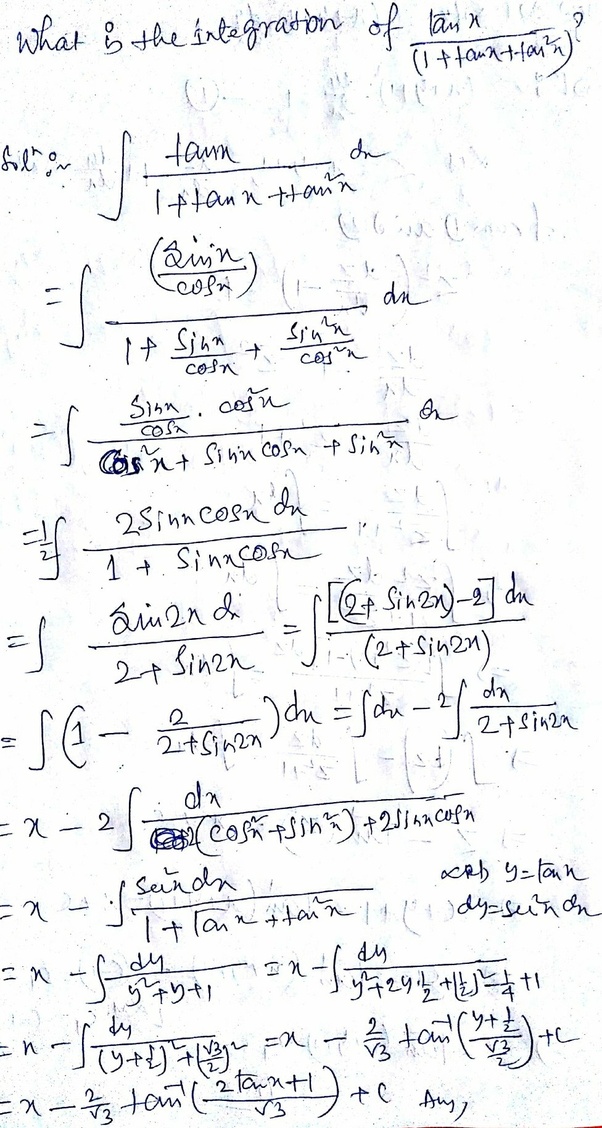 What is the integration of tan x / (1 + tan x + tan²x) ?
Solⁿ :~ ∫ tan x / (1 + tan x + tan²x) dx
= ∫ (sin x / cos x) / (1 + sin x / cos x + sin²x / cos²x) dx
= ∫ (sin x / cos x · cos²x) / (cos²x + sin x cos x + sin²x) dx
= 1/2 ∫ 2 sin x cos x dx / (1 + sin x cos x)
= ∫ sin 2x dx / (2 + sin 2x) = ∫ [(2 + sin 2x) - 2] dx / (2 + sin 2x)
= ∫ (1 - 2 / (2 + sin 2x)) dx = ∫ dx - 2 ∫ dx / (2 + sin 2x)
= x - 2 ∫ dx / (2 (cos²x + sin²x) + 2 sin x cos x)
= x - ∫ sec²x dx / (1 + tan x + tan²x) y = tan x
dy = sec²x dx
= x - ∫ dy / (y² + y + 1) = x - ∫ dy / (y² + 2y · 1/2 + (1/2)² - 1/4 + 1)
= x - ∫ dy / ((y + 1/2)² + (√3/2)²) = x - 2/√3 tan⁻¹ ((y + 1/2) / (√3/2)) + c
= x - 2/√3 tan⁻¹ ((2 tan x + 1) / √3) + c Ans,